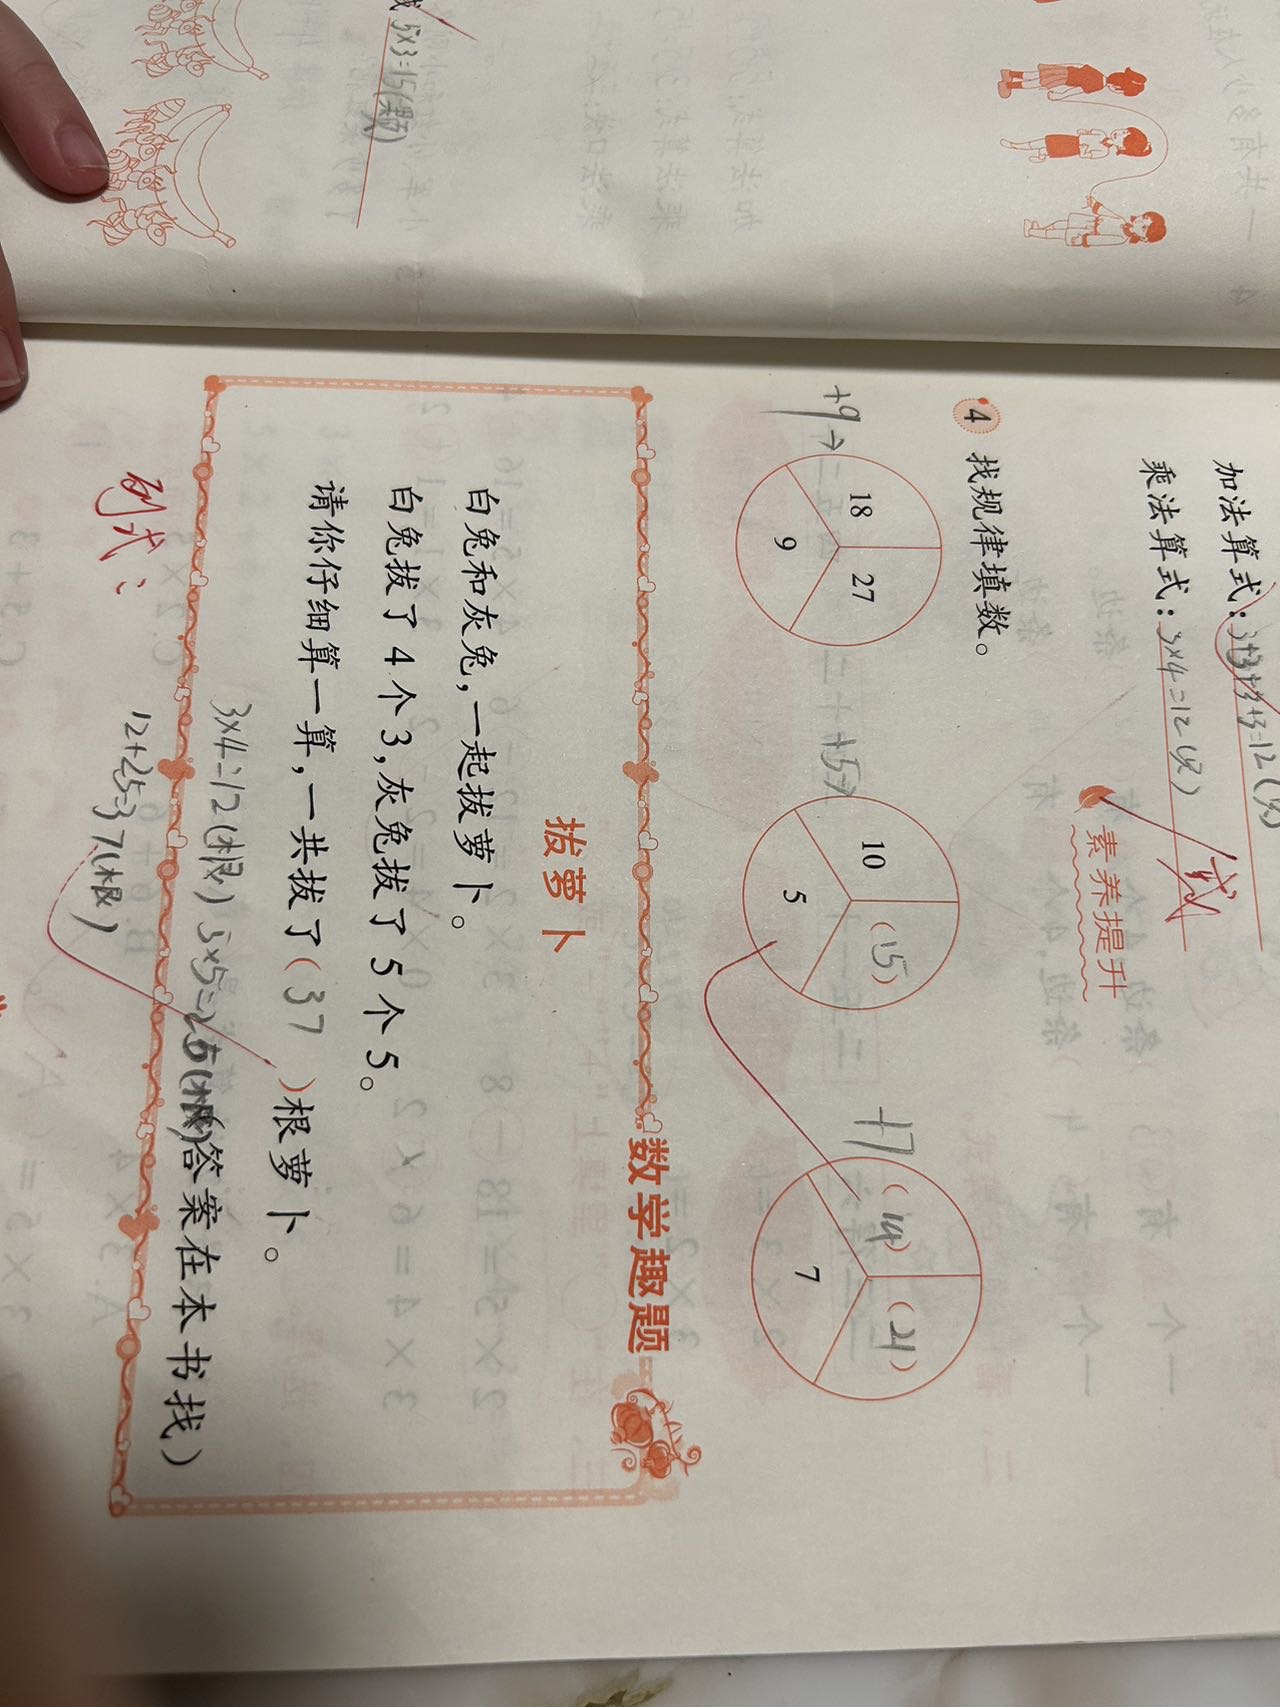 5×3=15(颗)
加法算式:3+3+3+3=12(次)
乘法算式:3×4=12(次)
素养提升
4 找规律填数。
+9→
18
27
9
+5→
10
(15)
5
+7
(14)
(21)
7
数学趣题
拔萝卜
白兔和灰兔,一起拔萝卜。
白兔拔了4个3,灰兔拔了5个5。
请你仔细算一算,一共拔了(37)根萝卜。
3×4=12(根) 5×5=25(根)
答案在本书找)
列式:
12+25=37(根)